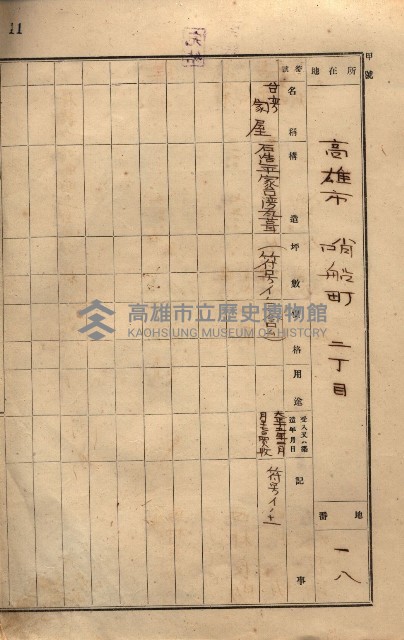 11
甲號
所在地
高雄市 哨船町 二丁目
地番
一八
符號
名稱
構造
坪數
價格
用途
受入又ハ築造年月日
記事
家屋
石造平家台湾瓦葺
符号イ
高雄市立歷史博物館
KAOHSIUNG MUSEUM OF HISTORY